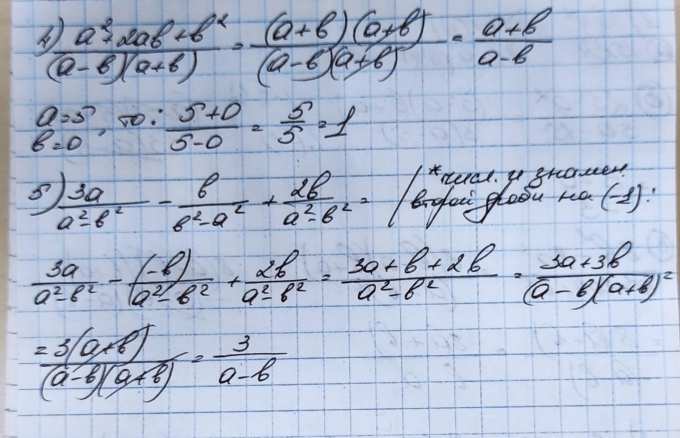 4) (a²+2ab+b²)/((a-b)(a+b)) = ((a+b)(a+b))/((a-b)(a+b)) = (a+b)/(a-b)
a=5
b=0, то: (5+0)/(5-0) = 5/5 = 1
5) 3a/(a²-b²) - b/(b²-a²) + 2b/(a²-b²) = /*числ. и знамен.
второй дроби на (-1):
3a/(a²-b²) - (-b)/(a²-b²) + 2b/(a²-b²) = (3a+b+2b)/(a²-b²) = (3a+3b)/((a-b)(a+b)²
= 3(a+b)/((a-b)(a+b)) = 3/(a-b)